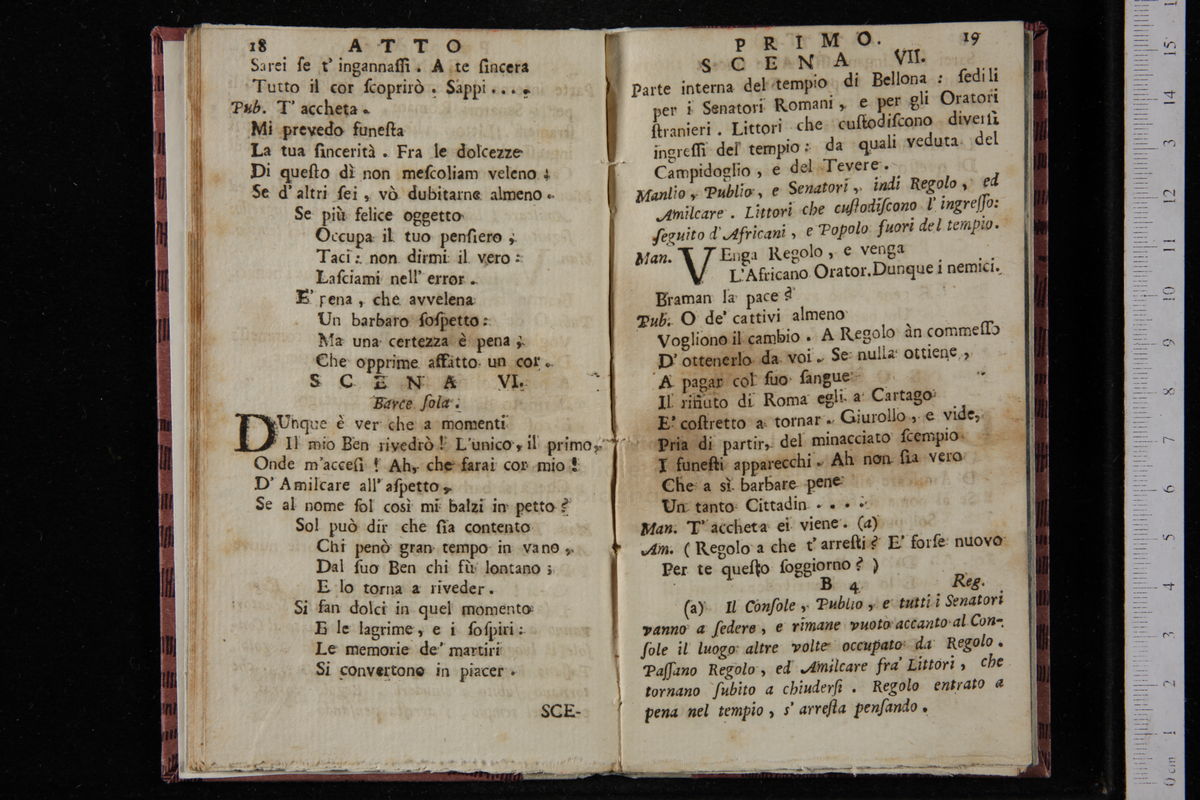 18 ATTO
Sarei ſe t' ingannaſſi. A te ſincera
Tutto il cor ſcoprirò. Sappi....
Pub. T' accheta.
Mi prevedo funeſta
La tua ſincerità. Fra le dolcezze
Di queſto dì non meſcoliam veleno;
Se d' altri ſei, vò dubitarne almeno.
Se più felice oggetto
Occupa il tuo penſiero;
Taci: non dirmi il vero:
Laſciami nell' error.
E' pena, che avvelena
Un barbaro ſoſpetto:
Ma una certezza è pena;
Che opprime affatto un cor.
SCENA VI.
Barce ſola.
DUnque è ver che a momenti
Il mio Ben rivedrò! L'unico, il primo,
Onde m'acceſi! Ah, che farai cor mio!
D' Amilcare all' aſpetto,
Se al nome ſol così mi balzi in petto?
Sol può dir che ſia contento
Chi penò gran tempo in vano,
Dal ſuo Ben chi fù lontano;
E lo torna a riveder.
Si fan dolci in quel momento
E le lagrime, e i ſoſpiri:
Le memorie de' martiri
Si convertono in piacer.
SCE-
PRIMO. 19
SCENA VII.
Parte interna del tempio di Bellona: ſedili
per i Senatori Romani, e per gli Oratori
ſtranieri. Littori che cuſtodiſcono diverſi
ingreſſi del tempio: da quali veduta del
Campidoglio, e del Tevere.
Manlio, Publio, e Senatori, indi Regolo, ed
Amilcare. Littori che cuſtodiſcono l' ingreſſo:
ſeguito d' Africani, e Popolo fuori del tempio.
Man. VEnga Regolo, e venga
L'Africano Orator. Dunque i nemici
Braman la pace?
Pub. O de' cattivi almeno
Vogliono il cambio. A Regolo àn commeſſo
D' ottenerlo da voi. Se nulla ottiene,
A pagar col ſuo ſangue
Il rifiuto di Roma egli a Cartago
E' coſtretto a tornar. Giurollo, e vide,
Pria di partir, del minacciato ſcempio
I funeſti apparecchi. Ah non ſia vero
Che a sì barbare pene
Un tanto Cittadin....
Man. T' accheta ei viene. (a)
Am. (Regolo a che t' arreſti? E' forſe nuovo
Per te queſto ſoggiorno?)
B 4 Reg.
(a) Il Conſole, Publio, e tutti i Senatori
vanno a ſedere, e rimane vuoto accanto al Con-
ſole il luogo altre volte occupato da Regolo.
Paſſano Regolo, ed Amilcare fra' Littori, che
tornano ſubito a chiuderſi. Regolo entrato a
pena nel tempio, s' arreſta penſando.
0 cm 1 2 3 4 5 6 7 8 9 10 11 12 13 14 15